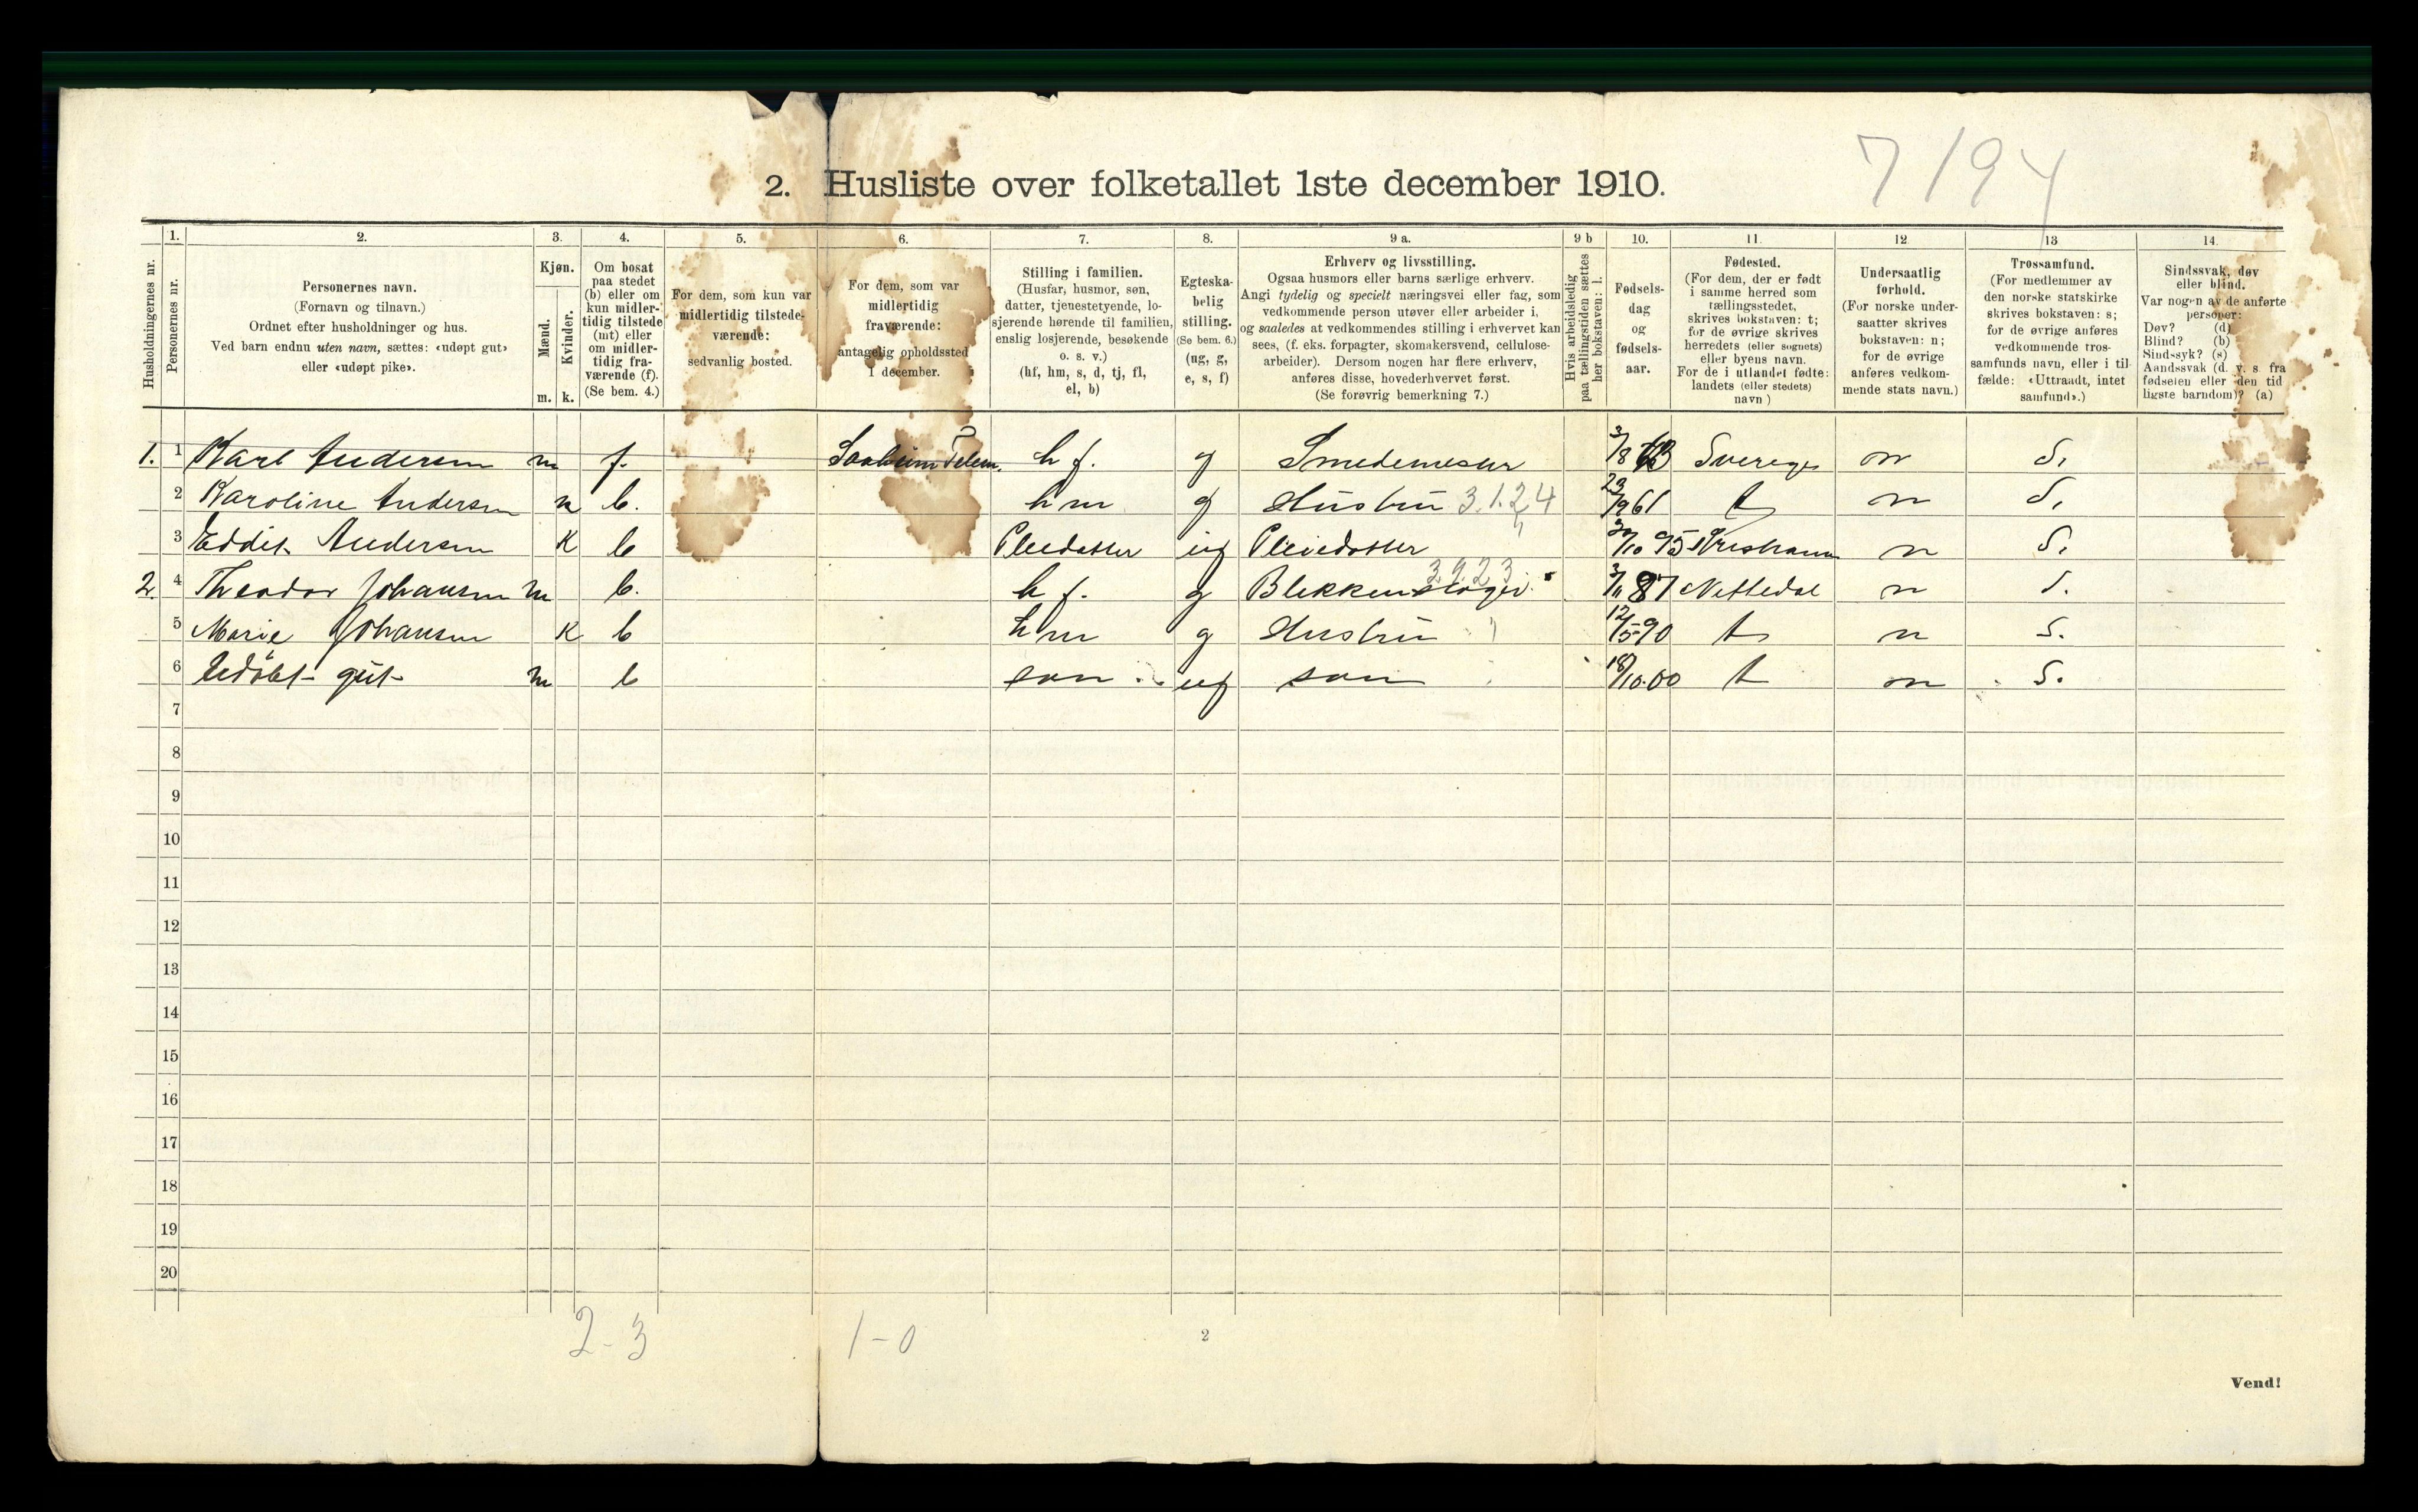 7194
2. Husliste over folketallet 1ste december 1910.
Husholdningernes nr.
1.
Personernes nr.
2.
Personernes navn.
(Fornavn og tilnavn.)
Ordnet efter husholdninger og hus.
Ved barn endnu uten navn, sættes: «udøpt gut»
eller «udøpt pike».
3.
Kjøn.
Mænd.
Kvinder.
m. k.
4.
Om bosat
paa stedet
(b) eller om
kun midler-
tidig tilstede
(mt) eller
om midler-
tidig fra-
værende (f).
(Se bem. 4.)
5.
For dem, som kun var
midlertidig tilstede-
værende:
sedvanlig bosted.
6.
For dem, som var
midlertidig
fraværende:
antagelig opholdssted
1 december.
7.
Stilling i familien.
(Husfar, husmor, søn,
datter, tjenestetyende, lo-
sjerende hørende til familien,
enslig losjerende, besøkende
o. s. v.)
(hf, hm, s, d, tj, fl,
el, b)
8.
Egteska-
belig
stilling.
(Se bem. 6.)
(ug, g,
e, s, f)
9 a.
Erhverv og livsstilling.
Ogsaa husmors eller barns særlige erhverv.
Angi tydelig og specielt næringsvei eller fag, som
vedkommende person utøver eller arbeider i,
og saaledes at vedkommendes stilling i erhvervet kan
sees, (f. eks. forpagter, skomakersvend, cellulose-
arbeider). Dersom nogen har flere erhverv,
anføres disse, hovederhvervet først.
(Se forøvrig bemerkning 7.)
9 b
Hvis arbeidsledig
paa tællingstiden sættes
her bokstaven: l.
10.
Fødsels-
dag
og
fødsels-
aar.
11.
Fødested.
(For dem, der er født
i samme herred som
tællingsstedet,
skrives bokstaven: t;
for de øvrige skrives
herredets (eller sognets)
eller byens navn.
For de i utlandet fødte:
landets (eller stedets)
navn)
12
Undersaatlig
forhold.
(For norske under-
saatter skrives
bokstaven: n;
for de øvrige
anføres vedkom-
mende stats navn.)
13
Trossamfund.
(For medlemmer av
den norske statskirke
skrives bokstaven: s;
for de øvrige anføres
vedkommende tros-
samfunds navn, eller i til-
fælde: «Uttraadt, intet
samfund».)
14.
Sindssvak, døv
eller blind.
Var nogen av de anførte
personer:
Døv? (d)
Blind? (b)
Sindssyk? (s)
Aandssvak (d. v. s. fra
fødselen eller den tid
ligste barndom)? (a)
1. 1 Karl Andersen m f. Saaheim Telem. hf. g Smedemester 3/8 63 Sverige n S.
2 Karoline Andersen k b. hm g Hustru 3.1.24 23/9 61 t n S.
3 Eddit Andersen K b Pleiedatter ug Pleiedatter 30/10 95 Kristiania n S.
2. 4 Theodor Johansen m b. hf. g Blikkenslager. 3.9.23 3/11 87 Nittedal n S.
5 Marie Johansen K b hm g Hustru 12/5-90 t n S.
6 Udöbt gut m b søn ug søn 18/10.00 t n S.
7
8
9
10
11
12
13
14
15
16
17
18
19
20
2-3 1-0
2
Vend!